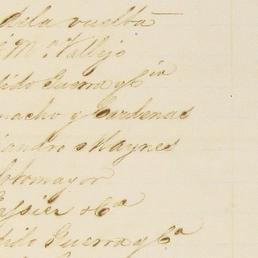 de la vuelta
M.ª Vallejo
dido Guerra y C.ia
macho y Cardenas
jandro Haynes
lomayor
Essier & C.a
dido Guerra y C.a